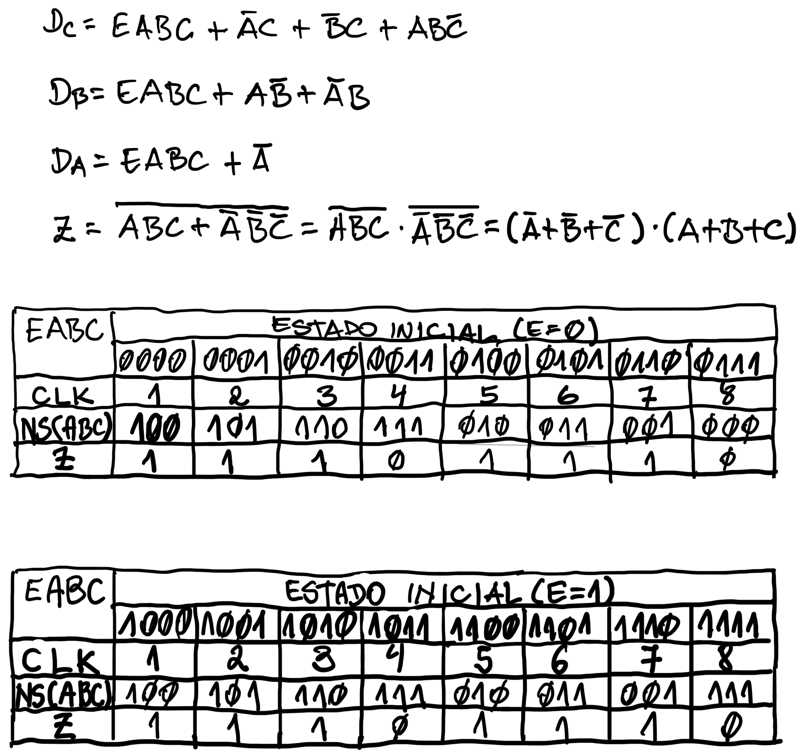 Dc = EABC + A̅C + B̅C + ABC̅
DB = EABC + AB̅ + A̅B
DA = EABC + A̅
Z = \overline{ABC + A̅B̅C̅} = \overline{ABC} · \overline{A̅B̅C̅} = (A̅+B̅+C̅)·(A+B+C)
EABC ESTADO INICIAL (E=0)
0000 0001 0010 0011 0100 0101 0110 0111
CLK 1 2 3 4 5 6 7 8
NS(ABC) 100 101 110 111 010 011 001 000
Z 1 1 1 0 1 1 1 0
EABC ESTADO INICIAL (E=1)
1000 1001 1010 1011 1100 1101 1110 1111
CLK 1 2 3 4 5 6 7 8
NS(ABC) 100 101 110 111 010 011 001 111
Z 1 1 1 0 1 1 1 0